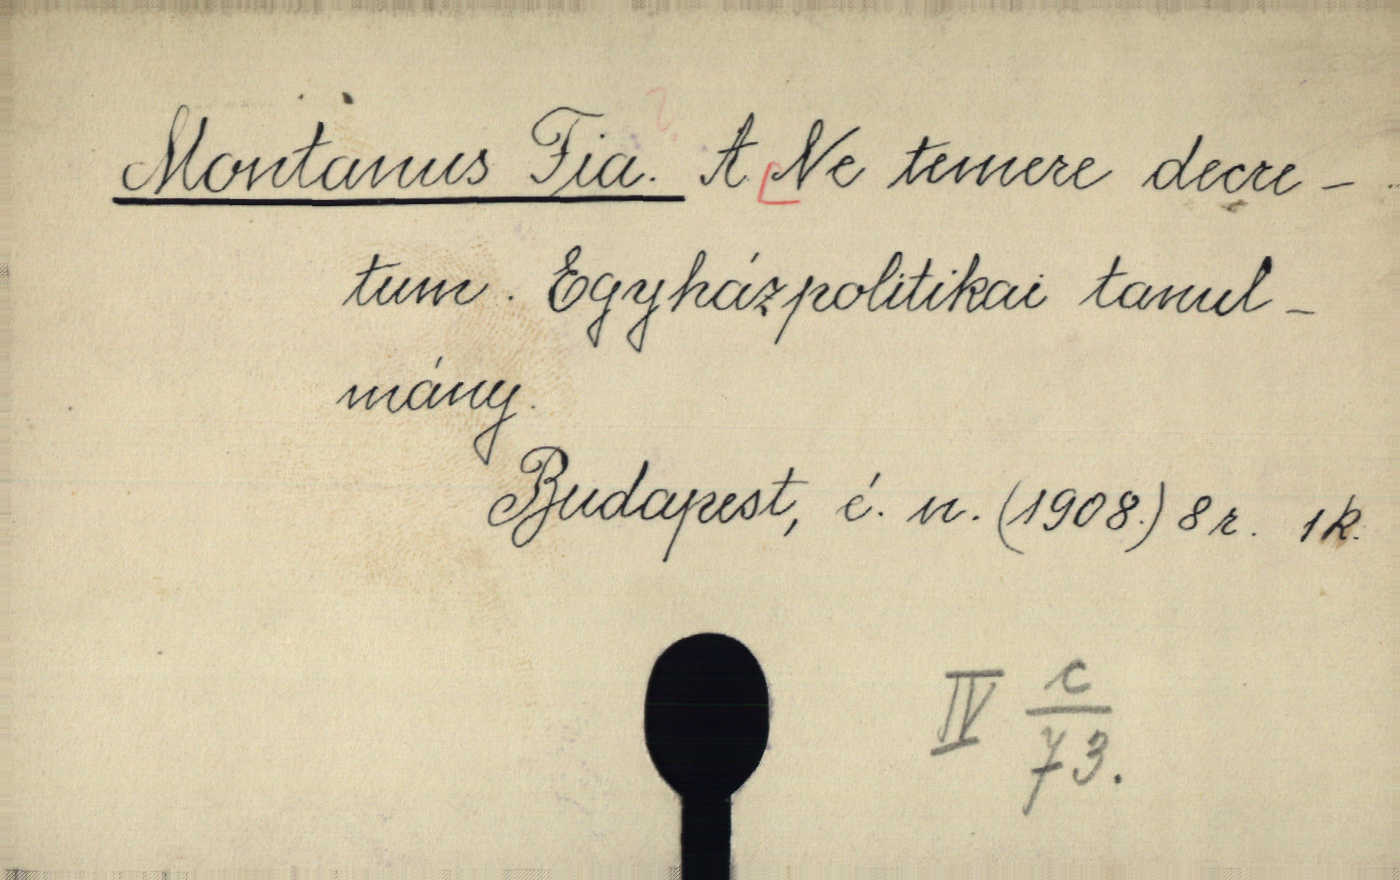 Montanus Fia. A Ne temere decre-
tum. Egyházpolitikai tanul-
mány.
Budapest, é. n. (1908.) 8r. 1k.
IV c/73.